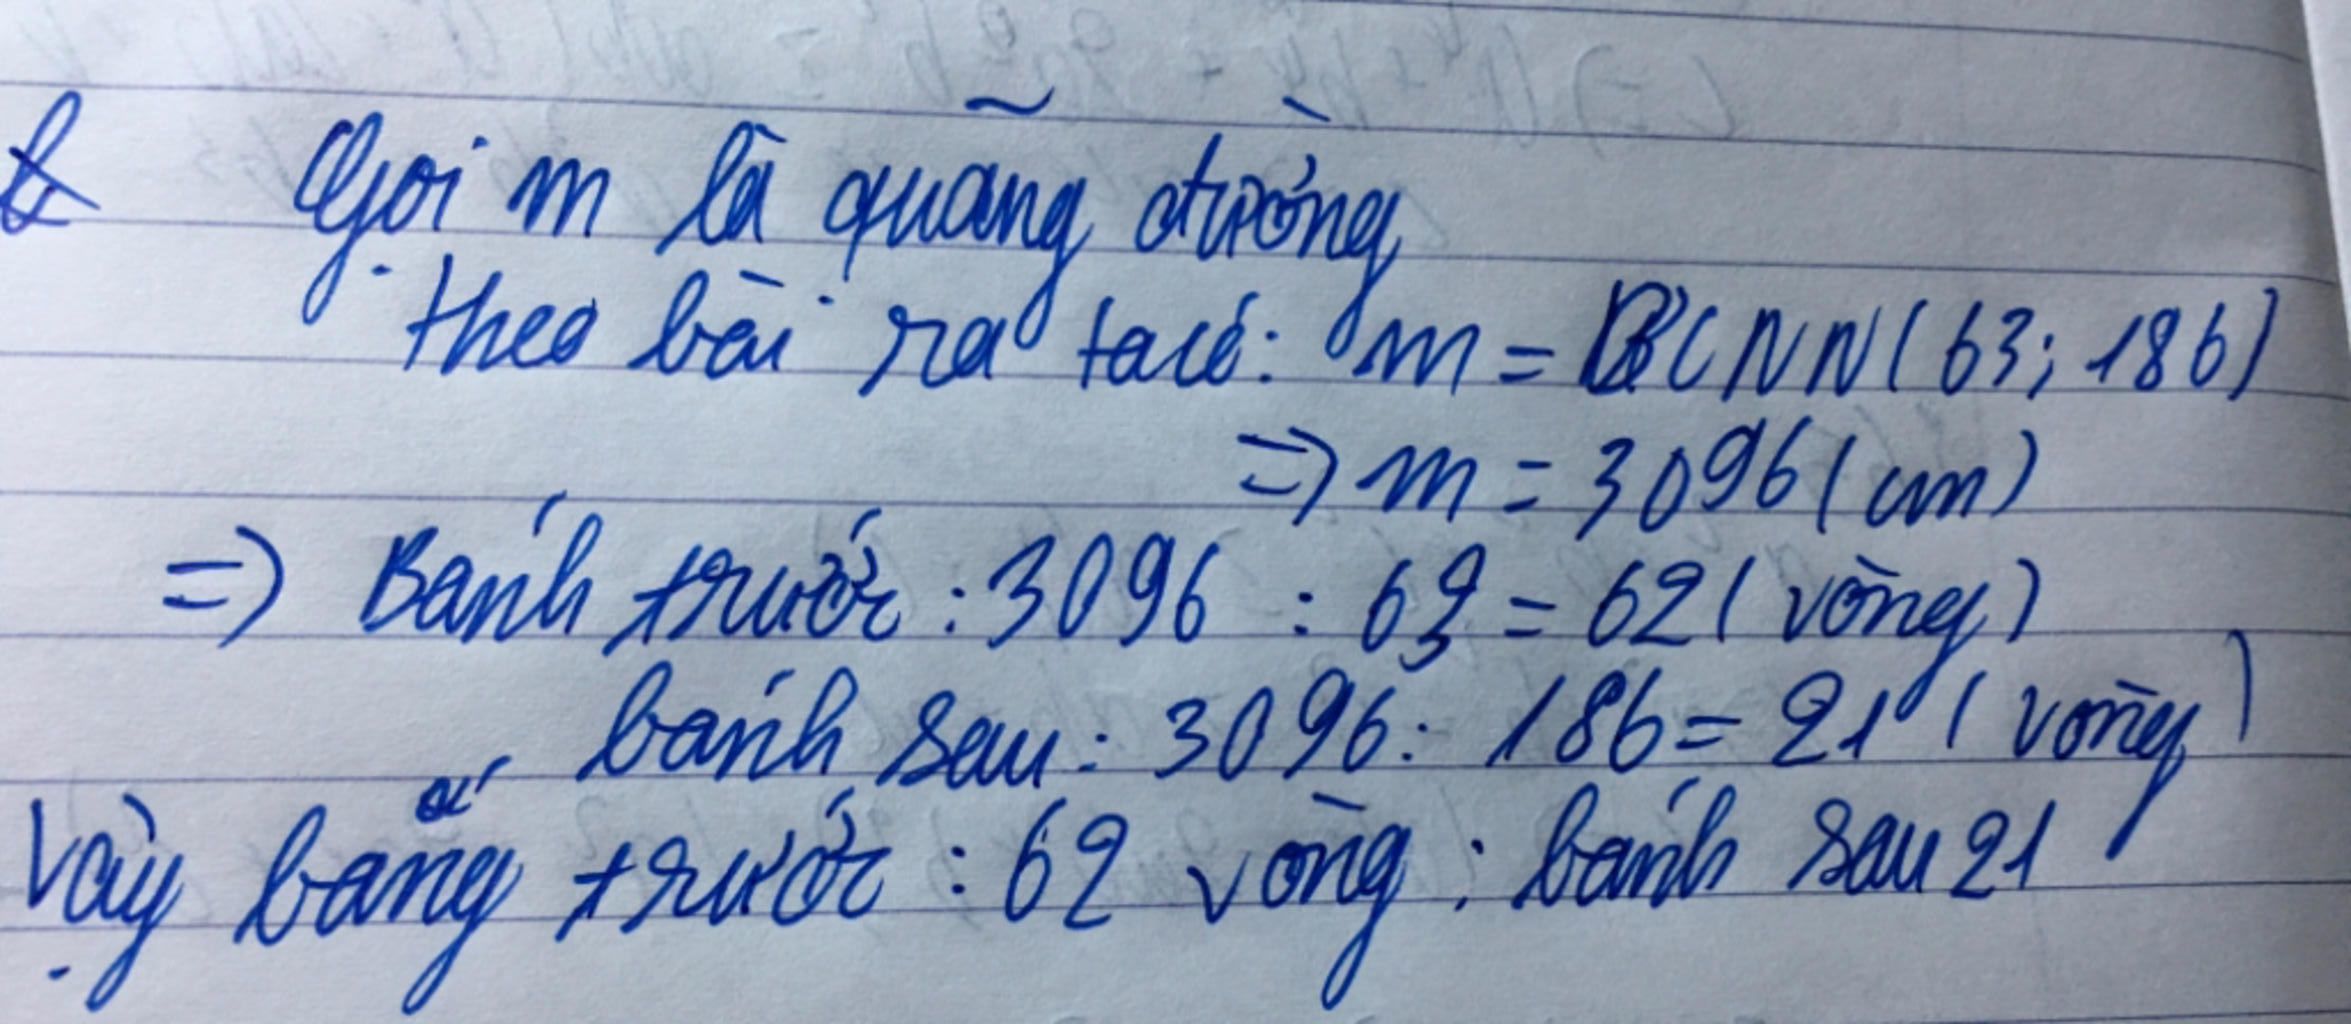 b Gọi m là quãng đường
theo bài ra ta có: m = BCNN(63; 186)
=> m = 3096(cm)
=> Bánh trước : 3096 : 63 = 62 (vòng)
bánh sau : 3096 : 186 = 21 (vòng)
Vậy bắng trước : 62 vòng ; bánh sau 21